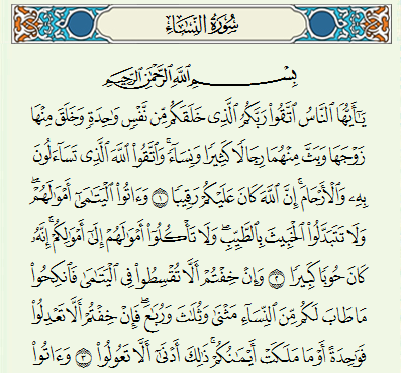 سُورَةُ النِّسَاءِ
بِسْمِ اللَّهِ الرَّحْمَٰنِ الرَّحِيمِ
يَٰٓأَيُّهَا ٱلنَّاسُ ٱتَّقُوا۟ رَبَّكُمُ ٱلَّذِى خَلَقَكُم مِّن نَّفْسٍ وَٰحِدَةٍ وَخَلَقَ مِنْهَا
زَوْجَهَا وَبَثَّ مِنْهُمَا رِجَالًا كَثِيرًا وَنِسَآءً ۚ وَٱتَّقُوا۟ ٱللَّهَ ٱلَّذِى تَسَآءَلُونَ
بِهِۦ وَٱلْأَرْحَامَ ۚ إِنَّ ٱللَّهَ كَانَ عَلَيْكُمْ رَقِيبًا ١ وَءَاتُوا۟ ٱلْيَتَٰمَىٰٓ أَمْوَٰلَهُمْ ۖ
وَلَا تَتَبَدَّلُوا۟ ٱلْخَبِيثَ بِٱلطَّيِّبِ ۖ وَلَا تَأْكُلُوٓا۟ أَمْوَٰلَهُمْ إِلَىٰٓ أَمْوَٰلِكُمْ ۚ إِنَّهُۥ
كَانَ حُوبًا كَبِيرًا ٢ وَإِنْ خِفْتُمْ أَلَّا تُقْسِطُوا۟ فِى ٱلْيَتَٰمَىٰ فَٱنكِحُوا۟
مَا طَابَ لَكُم مِّنَ ٱلنِّسَآءِ مَثْنَىٰ وَثُلَٰثَ وَرُبَٰعَ ۖ فَإِنْ خِفْتُمْ أَلَّا تَعْدِلُوا۟
فَوَٰحِدَةً أَوْ مَا مَلَكَتْ أَيْمَٰنُكُمْ ۚ ذَٰلِكَ أَدْنَىٰٓ أَلَّا تَعُولُوا۟ ٣ وَءَاتُوا۟